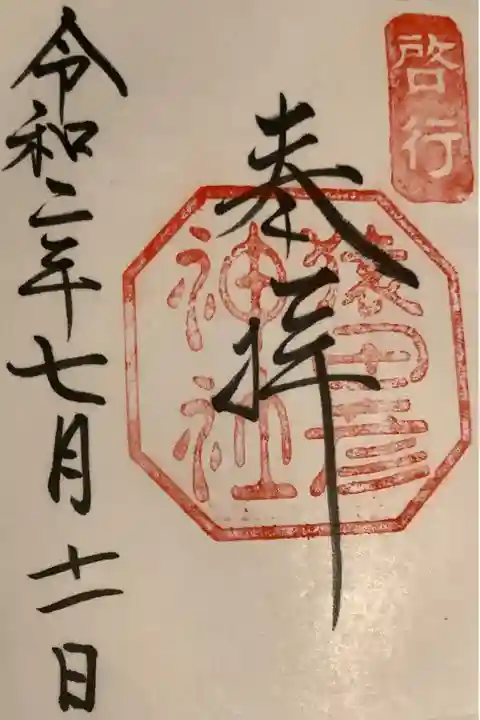 啓行
奉拝
猿田彦
神社
令和二年七月十一日